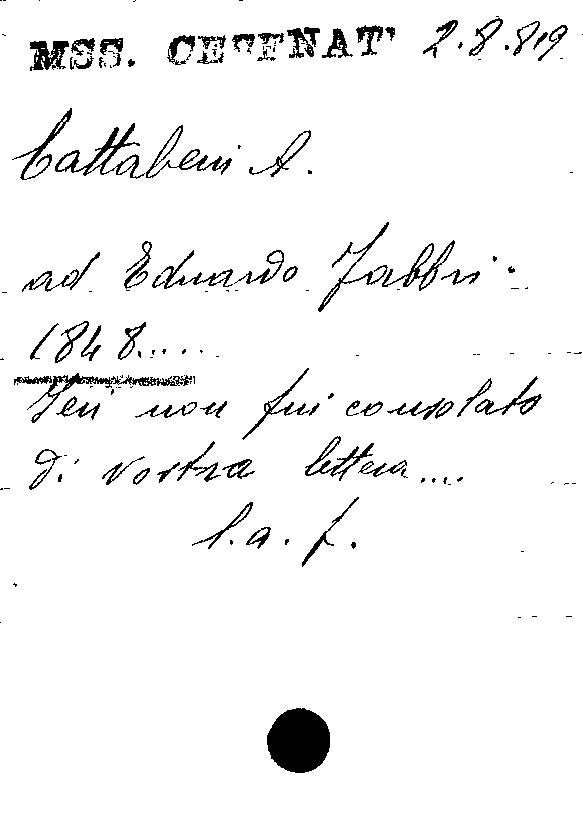 MSS. CESENAT' 2.8.819
Cattabeni A.
ad Eduardo Fabbri.
1848.....
Ieri non fui consolato
di vostra lettera....
l. a. f.